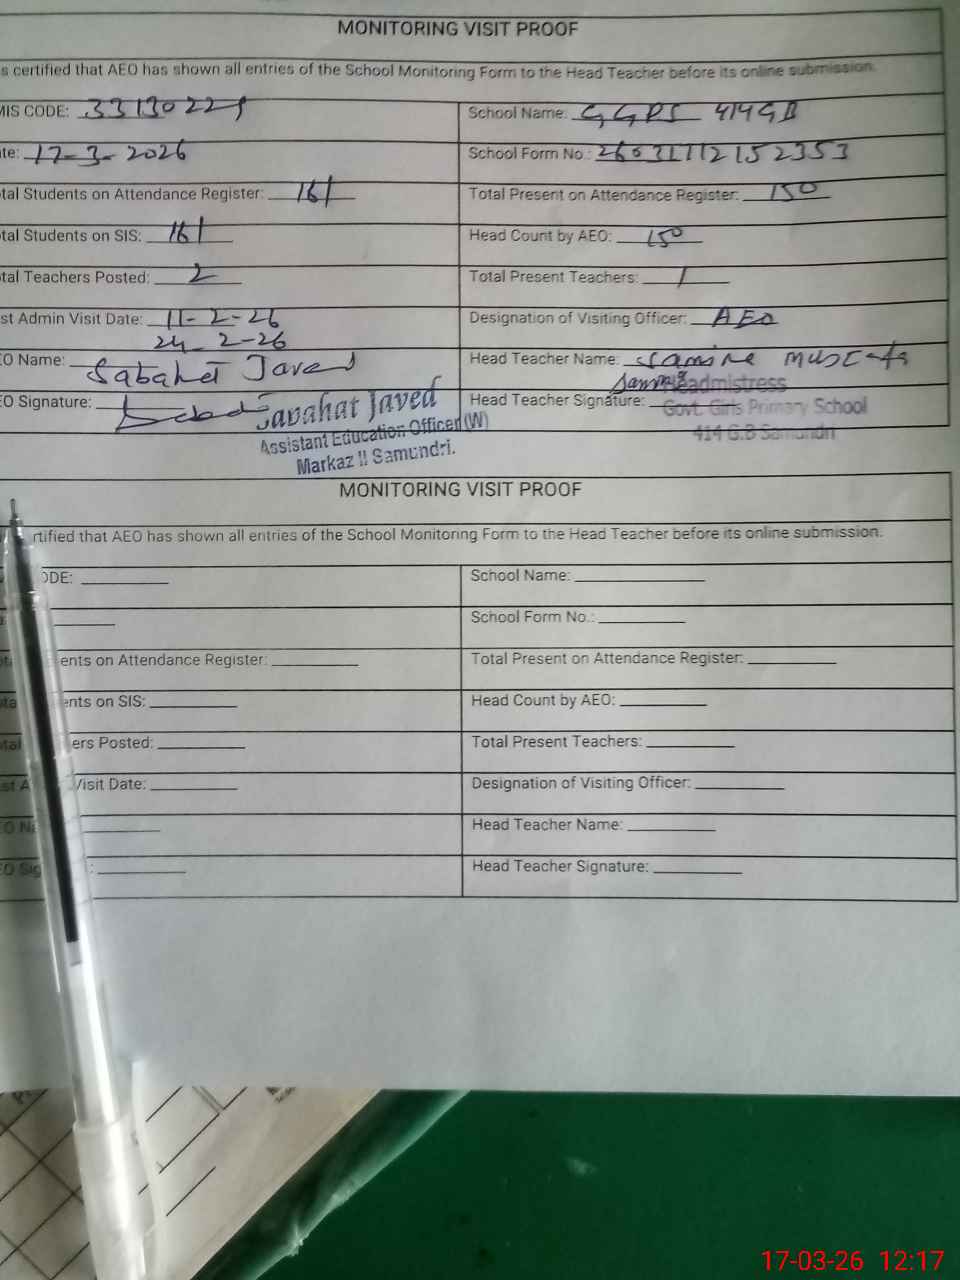 MONITORING VISIT PROOF
s certified that AEO has shown all entries of the School Monitoring Form to the Head Teacher before its online submission.
MIS CODE: 33130229 School Name: GGPS 414GB
te: 17-3-2026 School Form No.: 260311112152353
tal Students on Attendance Register: 161 Total Present on Attendance Register: 150
tal Students on SIS: 161 Head Count by AEO: 150
tal Teachers Posted: 2 Total Present Teachers: 1
st Admin Visit Date: 11-2-26 Designation of Visiting Officer: AEO
24-2-26
EO Name: Sabahat Javed Head Teacher Name: Samina Mustafa
EO Signature: Head Teacher Signature:
Savahat Javed
Assistant Education Officer (W)
Markaz II Samundri.
Headmistress
Govt. Girls Primary School
414 G.B Samundri
MONITORING VISIT PROOF
rtified that AEO has shown all entries of the School Monitoring Form to the Head Teacher before its online submission.
ODE: School Name:
School Form No.:
ents on Attendance Register: Total Present on Attendance Register:
ents on SIS: Head Count by AEO:
ers Posted: Total Present Teachers:
st A Visit Date: Designation of Visiting Officer:
EO Na Head Teacher Name:
EO Sig : Head Teacher Signature:
17-03-26 12:17